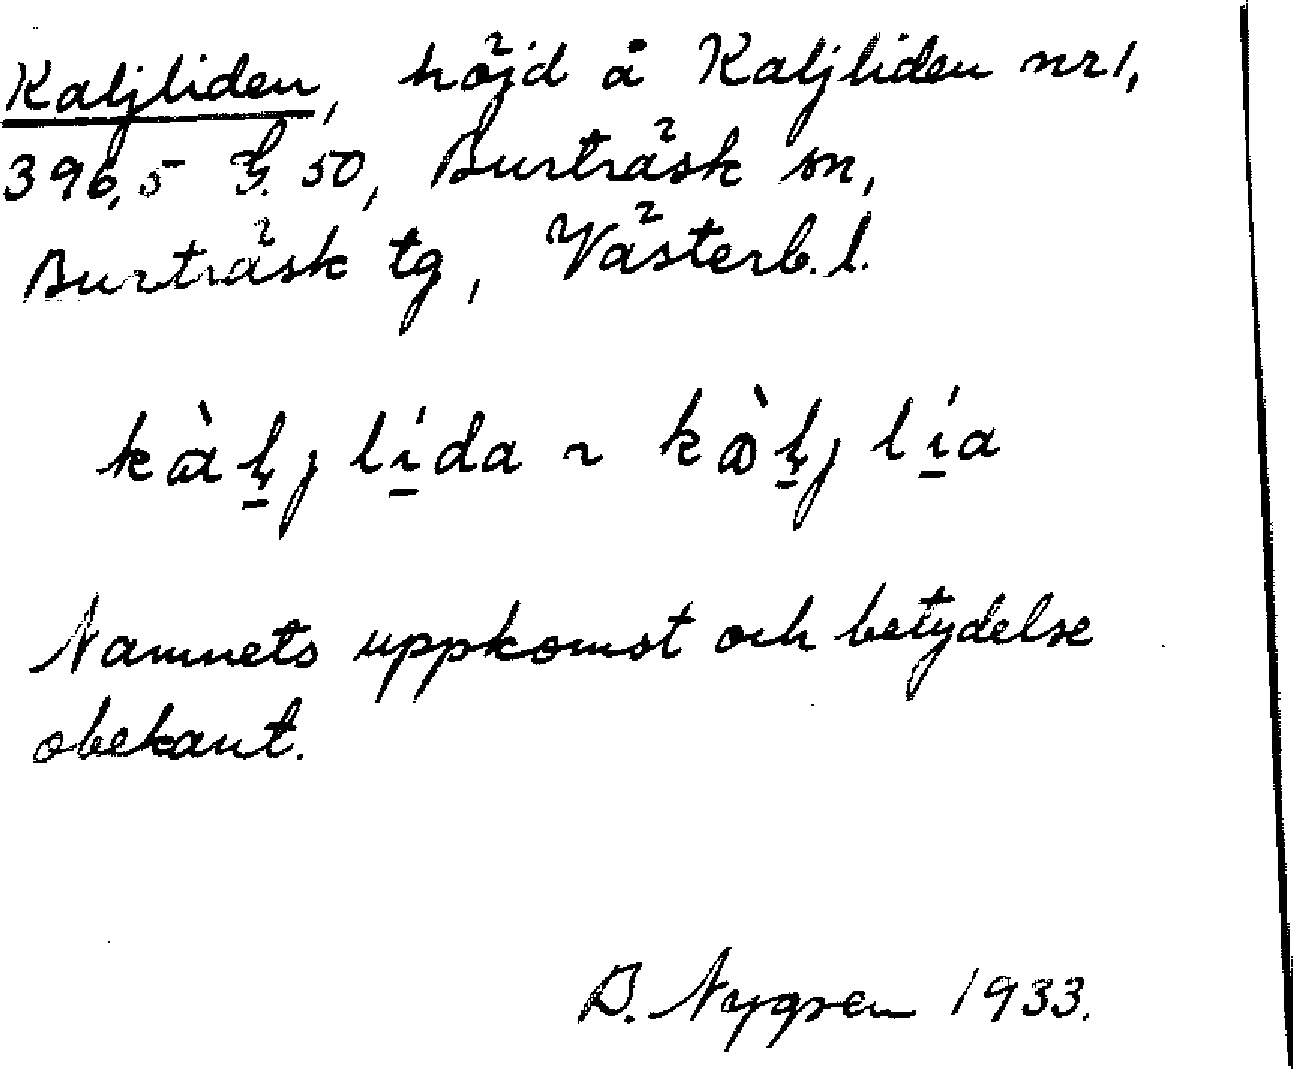 Kaljliden, höjd å Kaljliden nr 1,
396,5 50, Burträsk sn,
Burträsk tg, Västerb. l.
lída ~ lía
Namnets uppkomst och betydelse
obekant.
B. Nygren 1933.